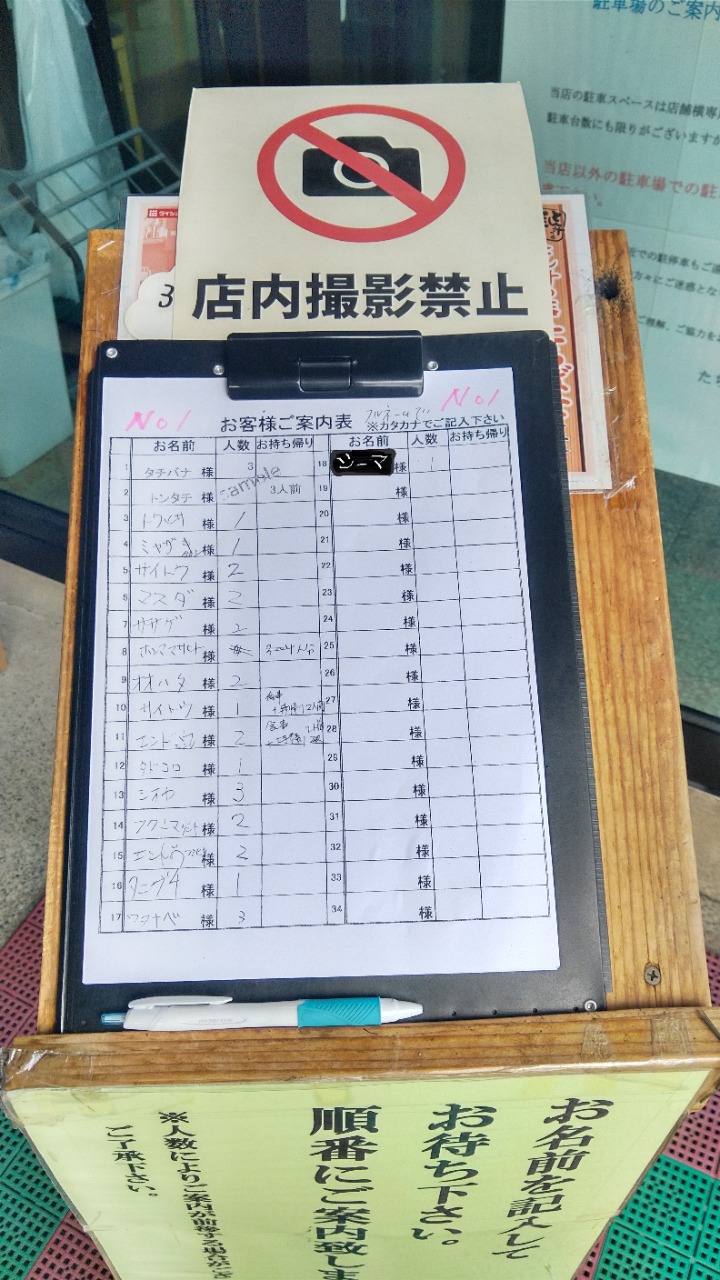 駐車場のご案内
当店の駐車スペースは店舗横専
駐車台数にも限りがございますが
当店以外の駐車場での駐
店内撮影禁止
3
No1
No1
お客様ご案内表
フルネームで
※カタカナでご記入下さい
お名前 人数 お持ち帰り お名前 人数 お持ち帰り
1 タチバナ 様 3 18 ジーマ 様 1
2 トンタチ 様 sample 3人前 19 様
3 様 1 20 様
4 ミヤザキ 様 1 21 様
5 サイトウ 様 2 22 様
6 マスダ 様 2 23 様
7 ササゲ 様 2 24 様
8 様 3〜4人分 25 様
9 オオハタ 様 2 26 様
10 サイトウ 様 1 27 様
11 様 2 28 様
12 タドコロ 様 1 29 様
13 シオヤ 様 3 30 様
14 様 2 31 様
15 様 2 32 様
16 タニグチ 様 1 33 様
17 ワタナベ 様 3 34 様
お名前を記入して
お待ち下さい。
順番にご案内致しま
※人数によりご案内が前後する場合がござ
ご了承下さい。